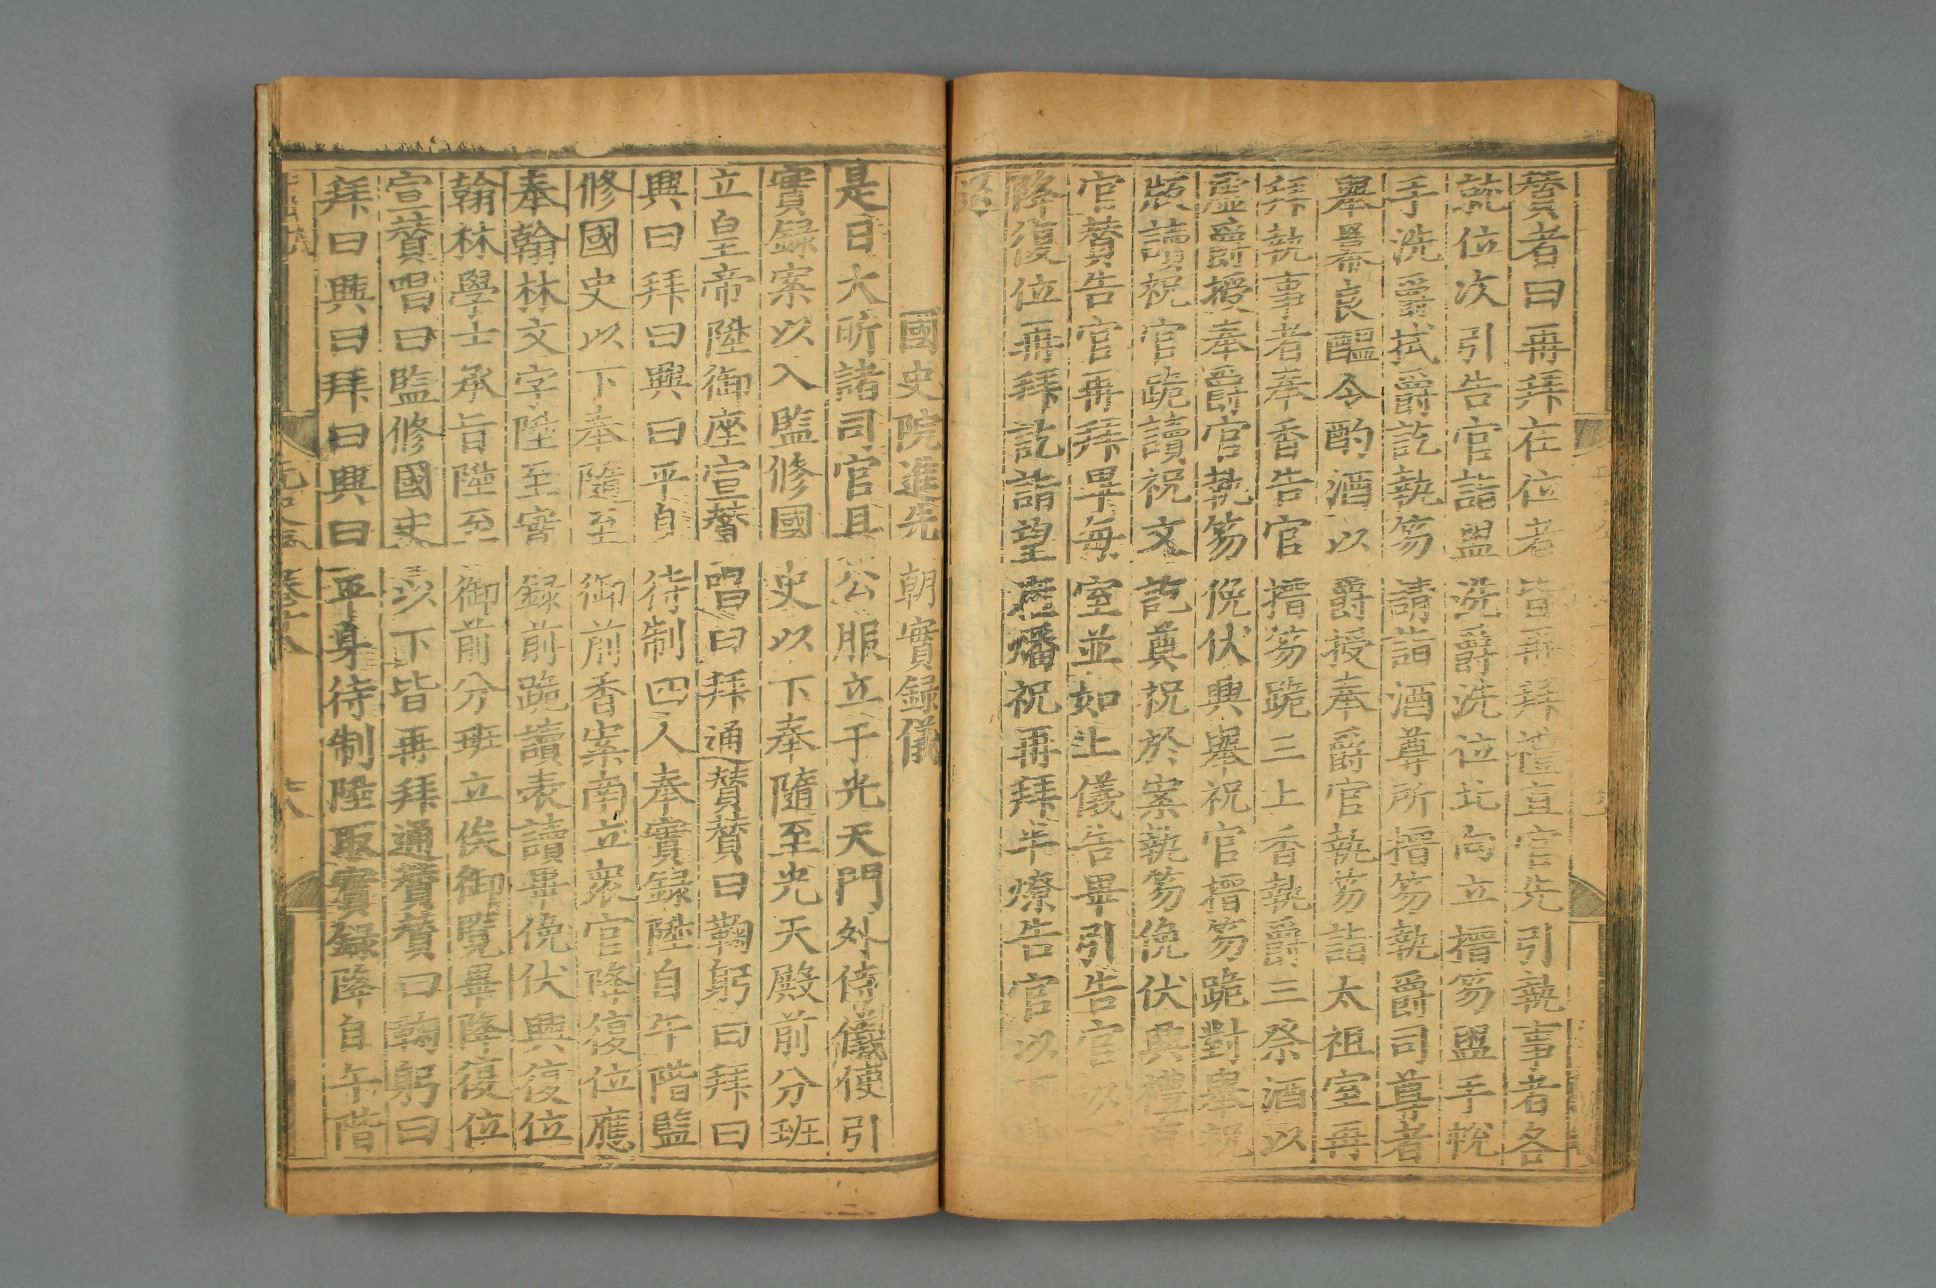 贊者曰再拜在位者皆再拜禮直官先引執事者各
就位次引告官詣盥洗爵洗位北向立搢笏盥手帨
手洗爵拭爵訖執笏請詣酒尊所搢笏執爵司尊者
舉羃良醞令酌酒以爵授奉爵官執笏詣太祖室再
拜執事者奉香告官搢笏跪三上香執爵三祭酒以
虛爵授奉爵官執笏俛伏興舉祝官搢笏跪對舉祝
版讀祝官跪讀祝文訖奠祝於案執笏俛伏興禮直
官贊告官再拜畢每室並如上儀告畢引告官以下
降復位再拜訖詣望瘞燔祝再拜半燎告官以下
退
國史院進先朝實録儀
是日大昕諸司官具公服立于光天門外侍儀使引
實録案以入監修國史以下奉隨至光天殿前分班
立皇帝陞御座宣贊唱曰拜通贊贊曰鞠躬曰拜曰
興曰拜曰興曰平身待制四人奉實録陞自午階監
修國史以下奉隨至御前香案南立衆官降復位應
奉翰林文字陞至實録前跪讀表讀畢俛伏興復位
翰林學士承旨陞至御前分班立俟御覽畢降復位
宣贊唱曰監修國史以下皆再拜通贊贊曰鞠躬曰
拜曰興曰拜曰興曰平身待制陞取實録降自午階
卷十八
六八